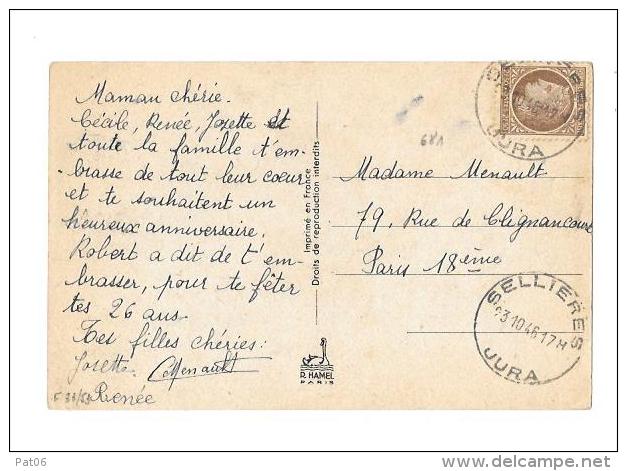 Maman chérie.
Cécile, Renée, Josette et
toute la famille t'em-
brasse de tout leur coeur
et te souhaitent un
heureux anniversaire,
Robert a dit de t'em-
brasser, pour te fêter
tes 26 ans.
Tes filles chéries:
Josette CMenault
Renée
Imprimé en France
Droits de reproduction interdits
R. HAMEL
PARIS
JURA
Madame Menault
79, Rue de Clignancourt
Paris 18ème
SELLIERES
23.10.46.17H
JURA
Pat06
www.delcampe.net